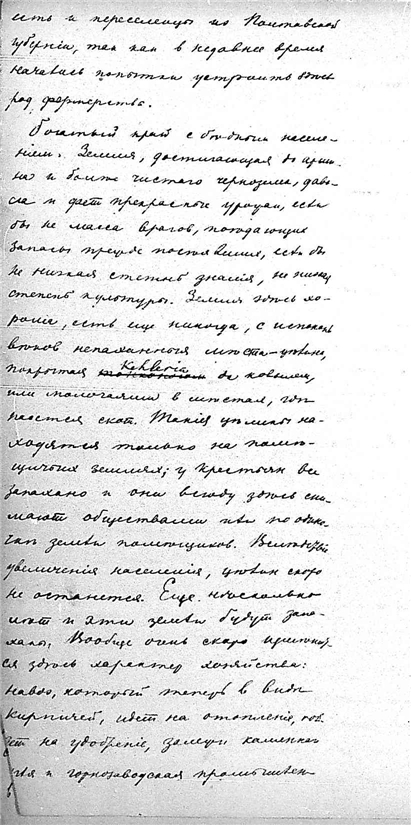 есть и переселенцы из Полтавской
губернiи, так как в недавнее время
начались попытки устроить здесь
род фермерства.
Богатый край с бедным населе-
нiем. Земля, достигающая до арши-
на и более чистого чернозема, дава-
ла и дает прекрасные урожаи, если
бы не масса врагов, поедающих
запасы прежде поспевания, если бы
не низкая степень знанiя, не низкая
степень культуры. Земля здесь хо-
рошая, есть еще никогда, с испокон
вѣков непаханныя мѣста – цѣлина,
покрытая Kohleria да ковылем,
или молочаями в мѣстах, гдѣ
пасется скот. Такiя цѣлины на-
ходятся только на помѣ-
щичьих землях; у крестьян все
запахано и они всюду здѣсь сни-
мают обществами или по одиноч-
кам земли помѣщиков. Вслѣдствiе
увеличенiя населенiя, цѣлин скоро
не останется. Еще нѣсколько
лѣт и эти земли будут запа-
ханы. Вообще очень скоро измѣнит-
ся здѣсь характер хозяйства:
навоз, который теперь в видѣ
кирпичей, идет на отопленiе, пой-
дет на удобренiе, залежи каменнаго
угля и горнозаводская промышлен-